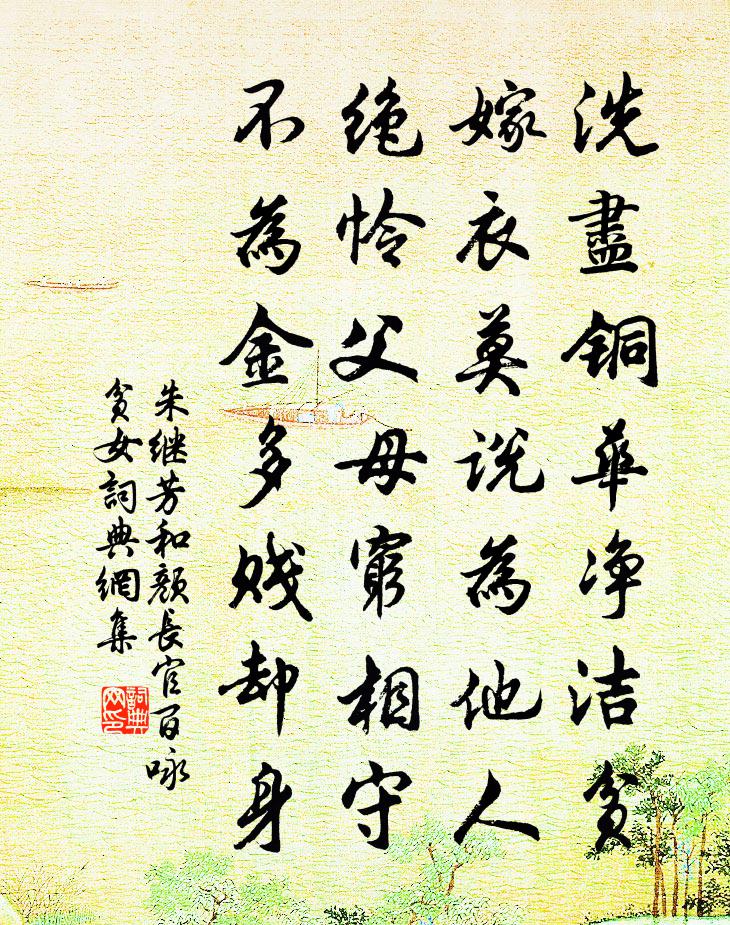 洗盡铜華净洁貧
嫁衣莫说為他人
绝怜父母窮相守
不為金多贱却身
朱继芳和颜長官百咏
貧女詞典網集
詞典网印